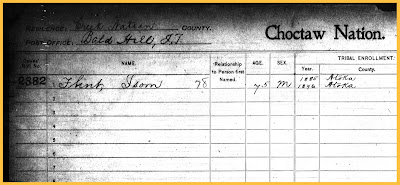 RESIDENCE: Creek Nation COUNTY.
POST-OFFICE: Bald Hill, I.T.
Choctaw Nation.
Roll No. NAME. Relationship to Person first Named. AGE. SEX. TRIBAL ENROLLMENT.
Year. County.
2382 1 Flint, Isom 78 75 M 1885 Atoka
1896 Atoka
2
3
4
5
6
7
8
9